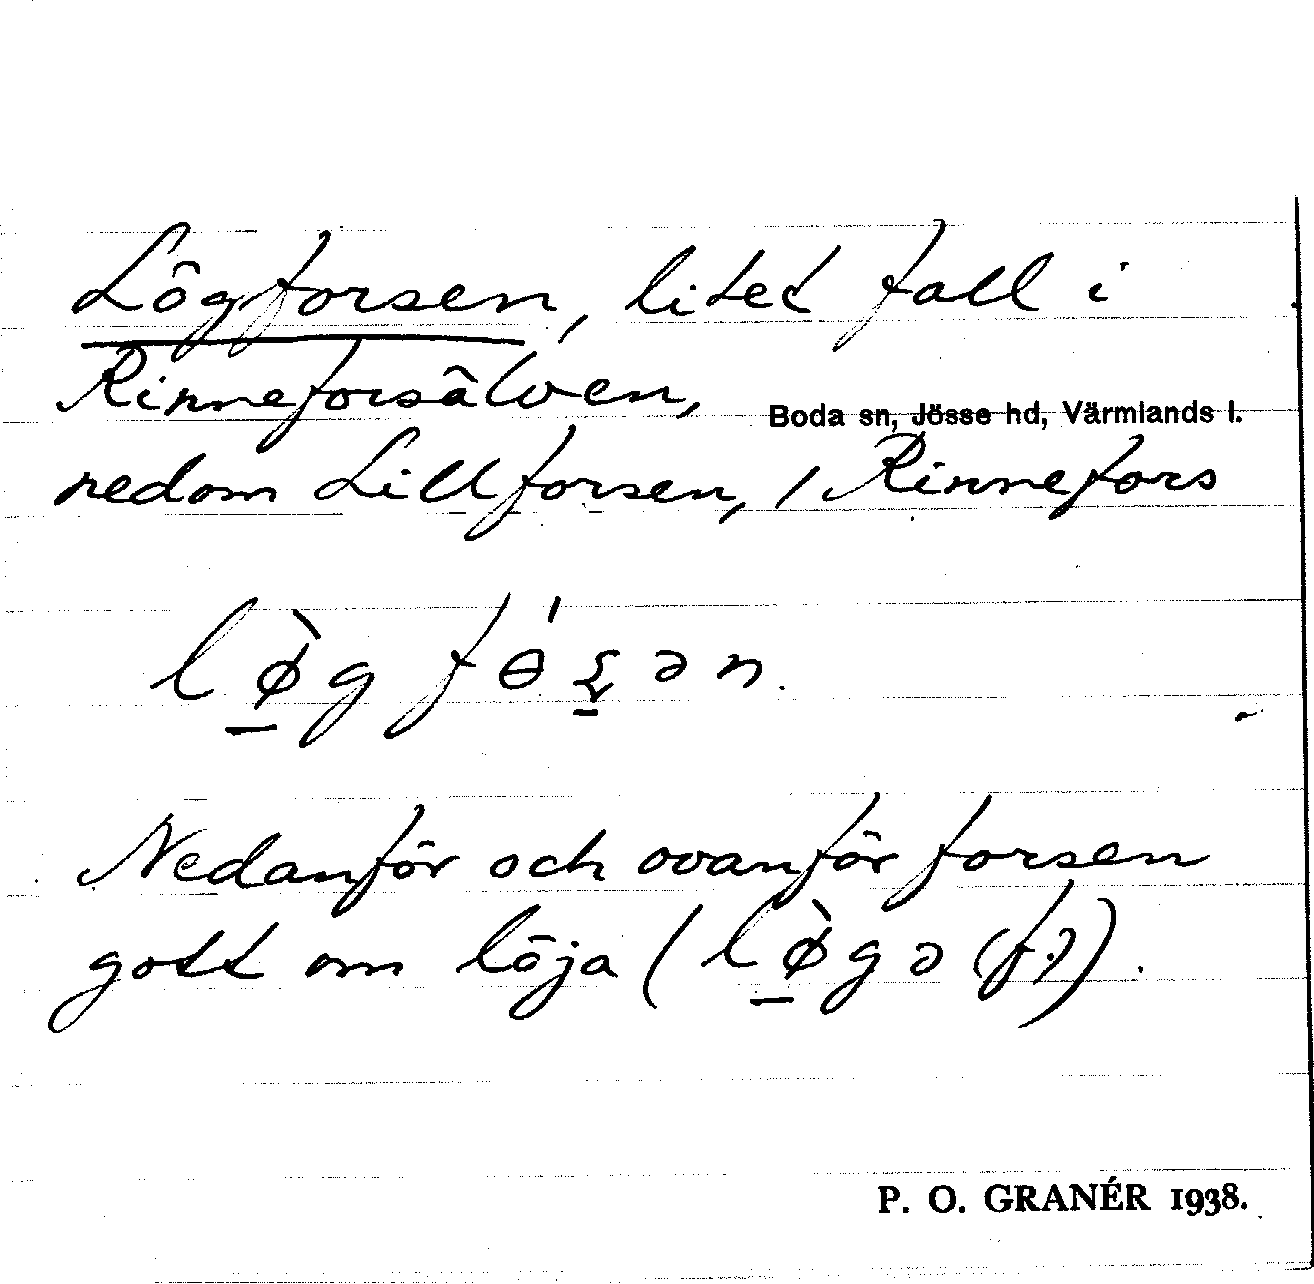 Lögforsen, litet fall i
Rinneforsälven,
Boda sn, Jösse hd, Värmlands l.
nedom Lillforsen, / Rinnefors
lø̠̀g fɵ́s̠ən.
Nedanför och ovanför forsen
gott om löja (lø̠̀gə (f.)).
P. O. GRANÉR 1938.